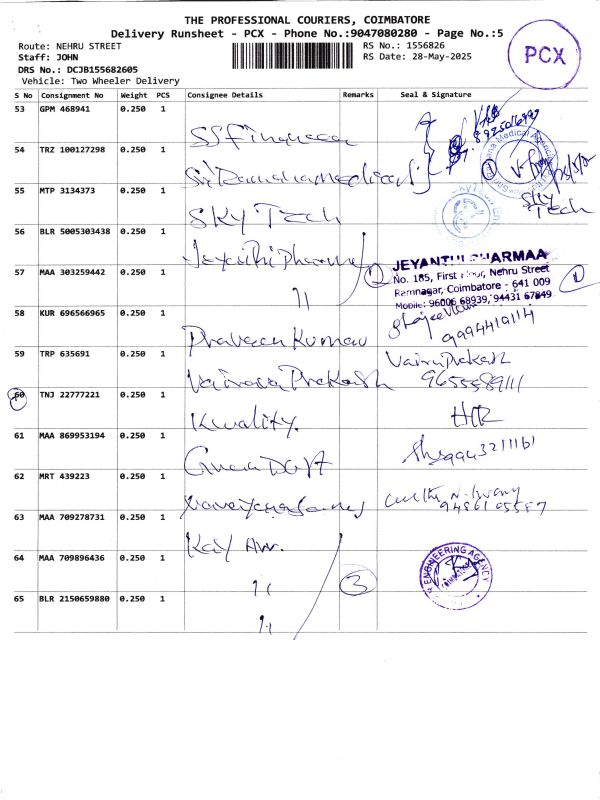 THE PROFESSIONAL COURIERS, COIMBATORE
Delivery Runsheet - PCX - Phone No.:9047080280 - Page No.:5
Route: NEHRU STREET
RS No.: 1556826
Staff: JOHN
RS Date: 28-May-2025
DRS No.: DCJB155682605
Vehicle: Two Wheeler Delivery
PCX
S No Consignment No Weight PCS Consignee Details Remarks Seal & Signature
53 GPM 468941 0.250 1
54 TRZ 100127298 0.250 1 Medicals
55 MTP 3134373 0.250 1 SKY Tech
SKY Tech
56 BLR 5005303438 0.250 1
57 MAA 303259442 0.250 1 11
JEYANTHI PHARMAA
No. 185, First Floor, Nehru Street
Ramnagar, Coimbatore - 641 009
Mobile: 96006 68939, 94431 67849
58 KUR 696566965 0.250 1 Praveen Kumar
9994419114
59 TRP 635691 0.250 1 Vairava Prakash
Vairav Prakash
60 TNJ 22777221 0.250 1 Kwality.
61 MAA 869953194 0.250 1
62 MRT 439223 0.250 1
63 MAA 709278731 0.250 1 Kay Aar.
64 MAA 709896436 0.250 1 11 3
ENGINEERING AGENCY
65 BLR 2150659880 0.250 1 11